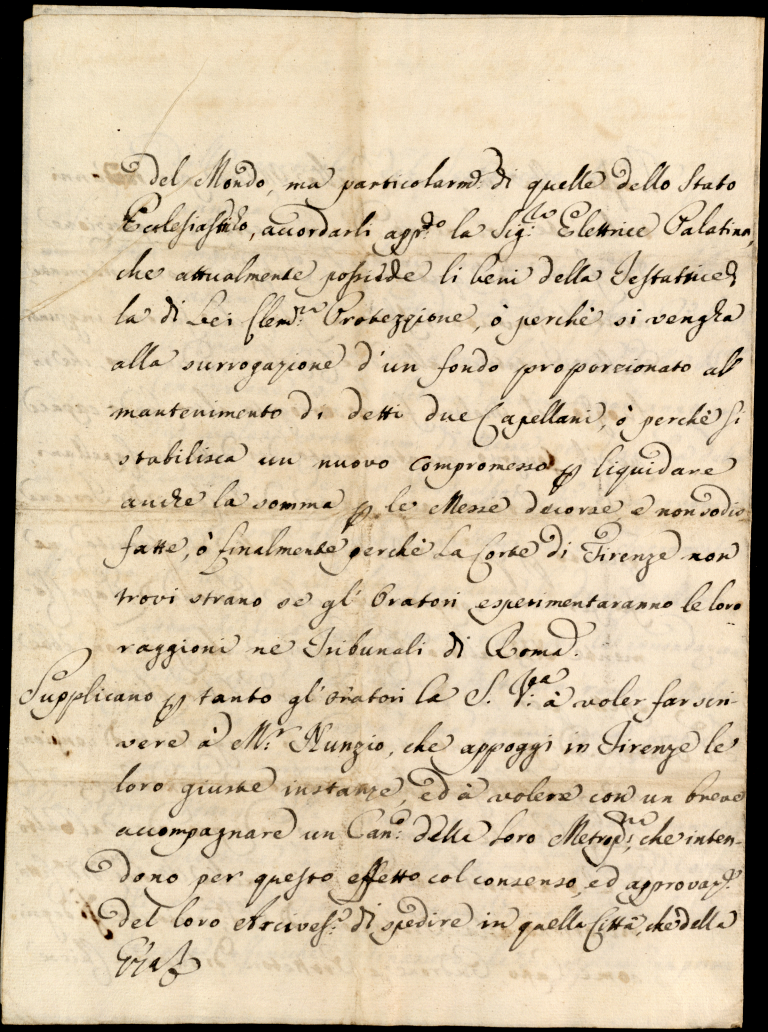 del Mondo, ma particolarm.e di quelle dello Stato
Ecclesiastico, accordarli app.o la Sig.ra Elettrice Palatina,
che attualmente possiede li beni della Testatrice
la di Lei Clem.ma Protezzione, ò perchè si vengha
alla surrogazione d'un fondo proporzionato al
mantenimento di detti due Capellani, ò perchè si
stabilisca un nuovo compromesso p liquidare
anche la somma p le Messe decorse e non sodis
fatte, ò finalmente perchè la Corte di Firenze non
trovi strano se gl' Oratori esperimentaranno le loro
raggioni ne Tribunali di Roma.
Supplicano p tanto gl' Oratori la S. V.ra à voler far scri-
vere à M.r Nunzio, che appoggi in Firenze le
loro giuste instanze, ed à volere con un breve
accompagnare un Can.o della loro Metrop.na, che inten-
dono per questo effetto col consenso, ed approvaz.e
del loro Arcives.o di spedire in quella Città, che della